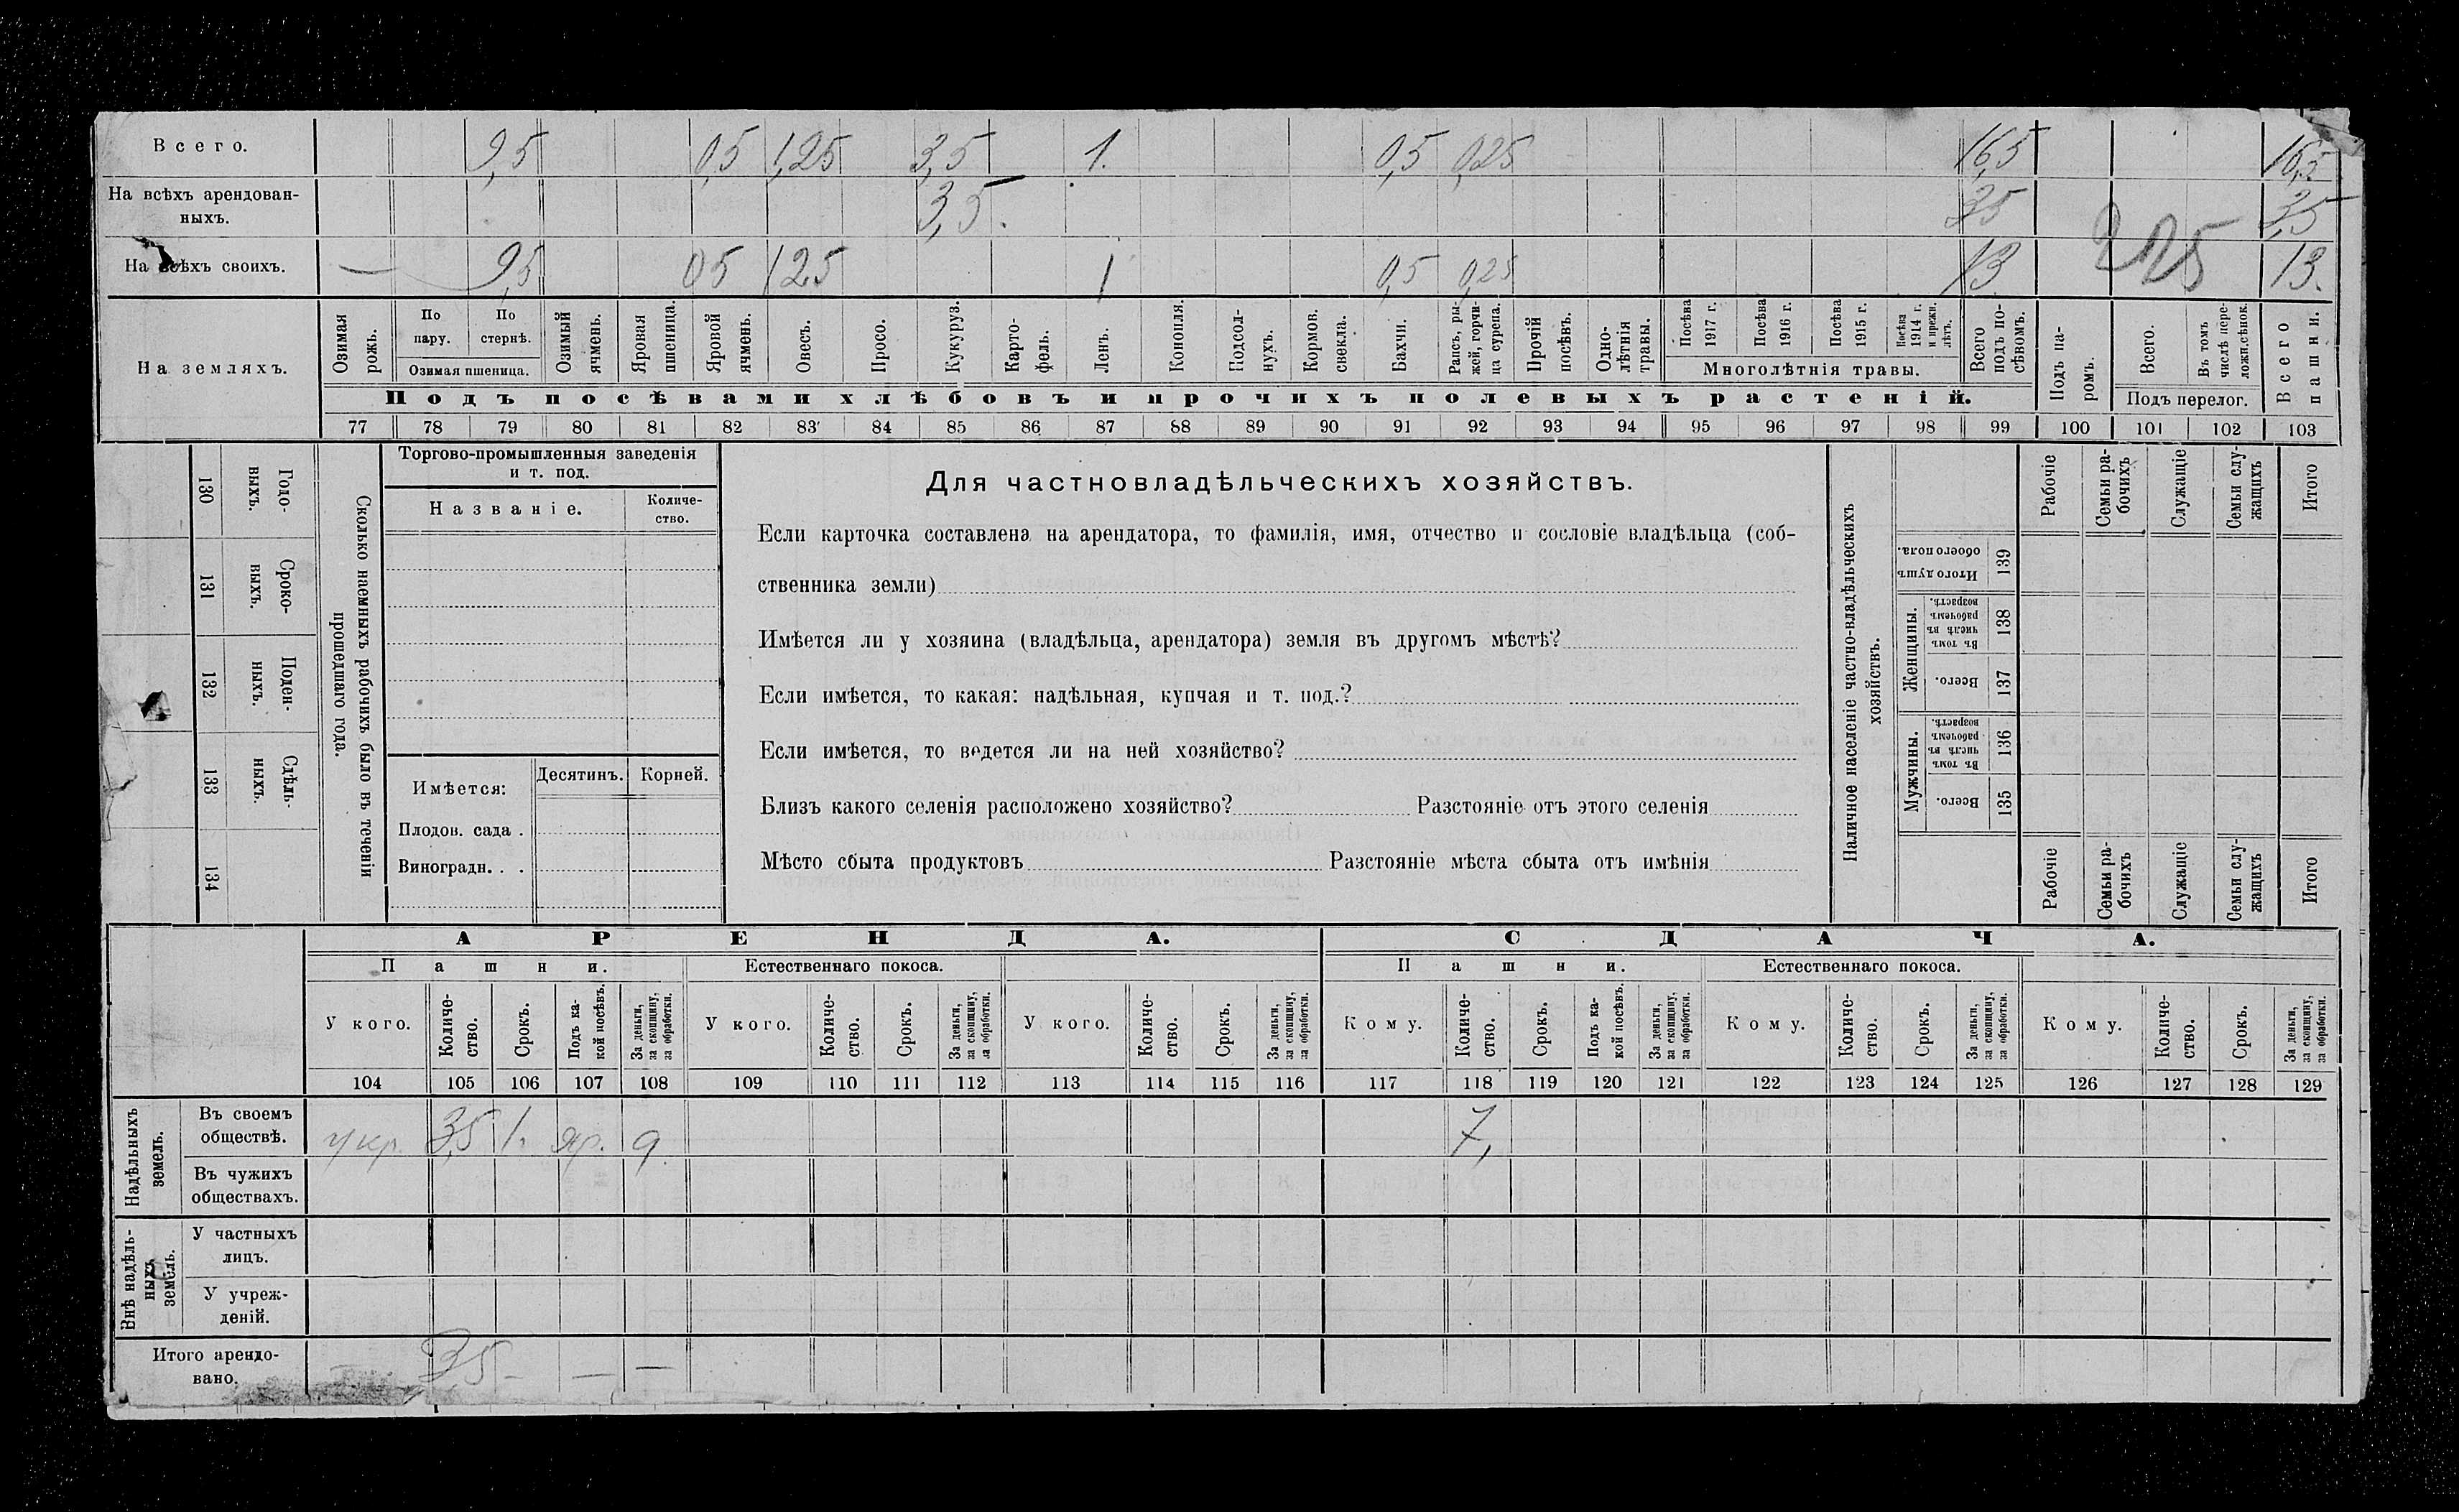 Всего. 9,5 0,5 1,25 3,5 1. 0,5 0,25 16,5 16,5
На всѣхъ арендован-
ныхъ. 3,5. 3,5 3,5
На всѣхъ своихъ. — 9,5 05 125 1 0,5 0,25 13 13.
На земляхъ.
Озимая рожь.
По пару.
По стернѣ.
Озимая пшеница.
Озимый ячмень.
Яровая пшеница.
Яровой ячмень.
Овесъ.
Просо.
Кукуруз.
Карто-
фель.
Ленъ.
Конопля.
Подсол-
нухъ.
Кормов. свекла.
Бахчи.
Рапсъ, ры-
жей, горчи-
ца сурепа.
Прочій посѣвъ.
Одно-
лѣтнія травы.
Посѣва 1917 г.
Посѣва 1916 г.
Посѣва 1915 г.
Посѣва 1914 г. и прежн. лѣтъ.
Многолѣтнія травы.
Всего подъ по-
сѣвомъ.
Подъ па-
ромъ.
Всего.
Въ томъ числѣ пере-
ложн.сѣнок.
Подъ перелог.
Всего пашни.
Подъ посѣвами хлѣбовъ и прочихъ полевыхъ растеній.
77 78 79 80 81 82 83 84 85 86 87 88 89 90 91 92 93 94 95 96 97 98 99 100 101 102 103
130 Годо-
выхъ.
131 Сроко-
выхъ.
132 Поден-
ныхъ.
133 Сдѣль-
ныхъ.
134
Сколько наемныхъ рабочихъ было въ теченіи
прошедшаго года.
Торгово-промышленныя заведенія
и т. под.
Названіе.
Количе-
ство.
Имѣется: Десятинъ. Корней.
Плодов. сада .
Виноградн. . .
Для частновладѣльческихъ хозяйствъ.
Если карточка составлена на арендатора, то фамилія, имя, отчество и сословіе владѣльца (соб-
ственника земли)
Имѣется ли у хозяина (владѣльца, арендатора) земля въ другомъ мѣстѣ?
Если имѣется, то какая: надѣльная, купчая и т. под.?
Если имѣется, то ведется ли на ней хозяйство?
Близъ какого селенія расположено хозяйство? Разстояніе отъ этого селенія
Мѣсто сбыта продуктовъ Разстояніе мѣста сбыта отъ имѣнія
Наличное населеніе частно-владѣльческихъ
хозяйствъ.
Итого душъ обоего пола. 139
Женщины.
Въ томъ числѣ въ рабочемъ возрастѣ. 138
Всего. 137
Мужчины.
Въ томъ числѣ въ рабочемъ возрастѣ. 136
Всего. 135
Рабочіе
Семьи ра-
бочихъ
Служащіе
Семьи слу-
жащихъ
Итого
Рабочіе
Семьи ра-
бочихъ
Служащіе
Семьи слу-
жащихъ
Итого
АРЕНДА. СДАЧА.
Пашни. Естественнаго покоса. Пашни. Естественнаго покоса.
У кого.
Количе-
ство.
Срокъ.
Подъ ка-
кой посѣвъ.
За деньги,
за скопщину,
за обработки.
У кого.
Количе-
ство.
Срокъ.
За деньги,
за скопщину,
за обработки.
У кого.
Количе-
ство.
Срокъ.
За деньги,
за скопщину,
за обработки.
Кому.
Количе-
ство.
Срокъ.
Подъ ка-
кой посѣвъ.
За деньги,
за скопщину,
за обработки.
Кому.
Количе-
ство.
Срокъ.
За деньги,
за скопщину,
за обработки.
Кому.
Количе-
ство.
Срокъ.
За деньги,
за скопщину,
за обработки.
104 105 106 107 108 109 110 111 112 113 114 115 116 117 118 119 120 121 122 123 124 125 126 127 128 129
Надѣльныхъ
земель.
Въ своемъ
обществѣ. укр. 3,5 1. яр. 7,
Въ чужихъ
обществахъ.
Внѣ надѣль-
ныхъ
земель.
У частныхъ
лицъ.
У учреж-
деній.
Итого арендо-
вано. — 3,5 — — —